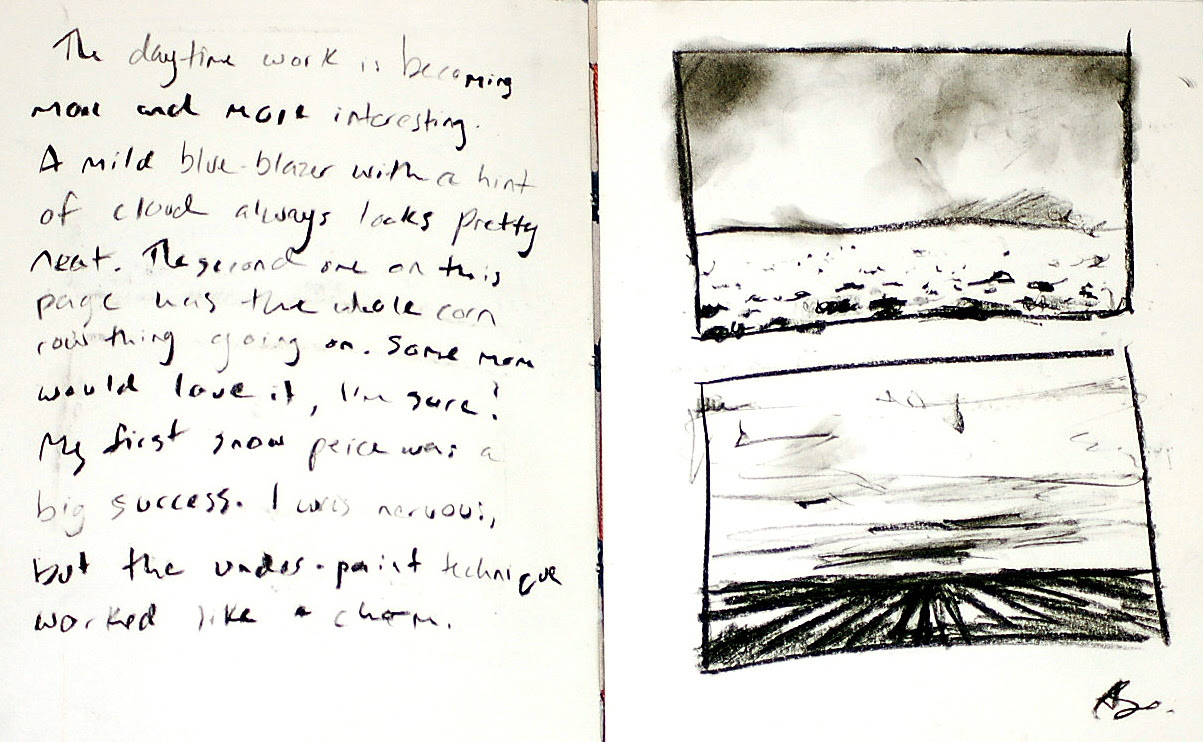 The daytime work is becoming
more and more interesting.
A mild blue-blazer with a hint
of cloud always looks pretty
neat. The second one on this
page has the whole corn
row thing going on. Some mom
would love it, I'm sure!
My first snow peice was a
big success. I was nervous,
but the under-paint technique
worked like a charm.